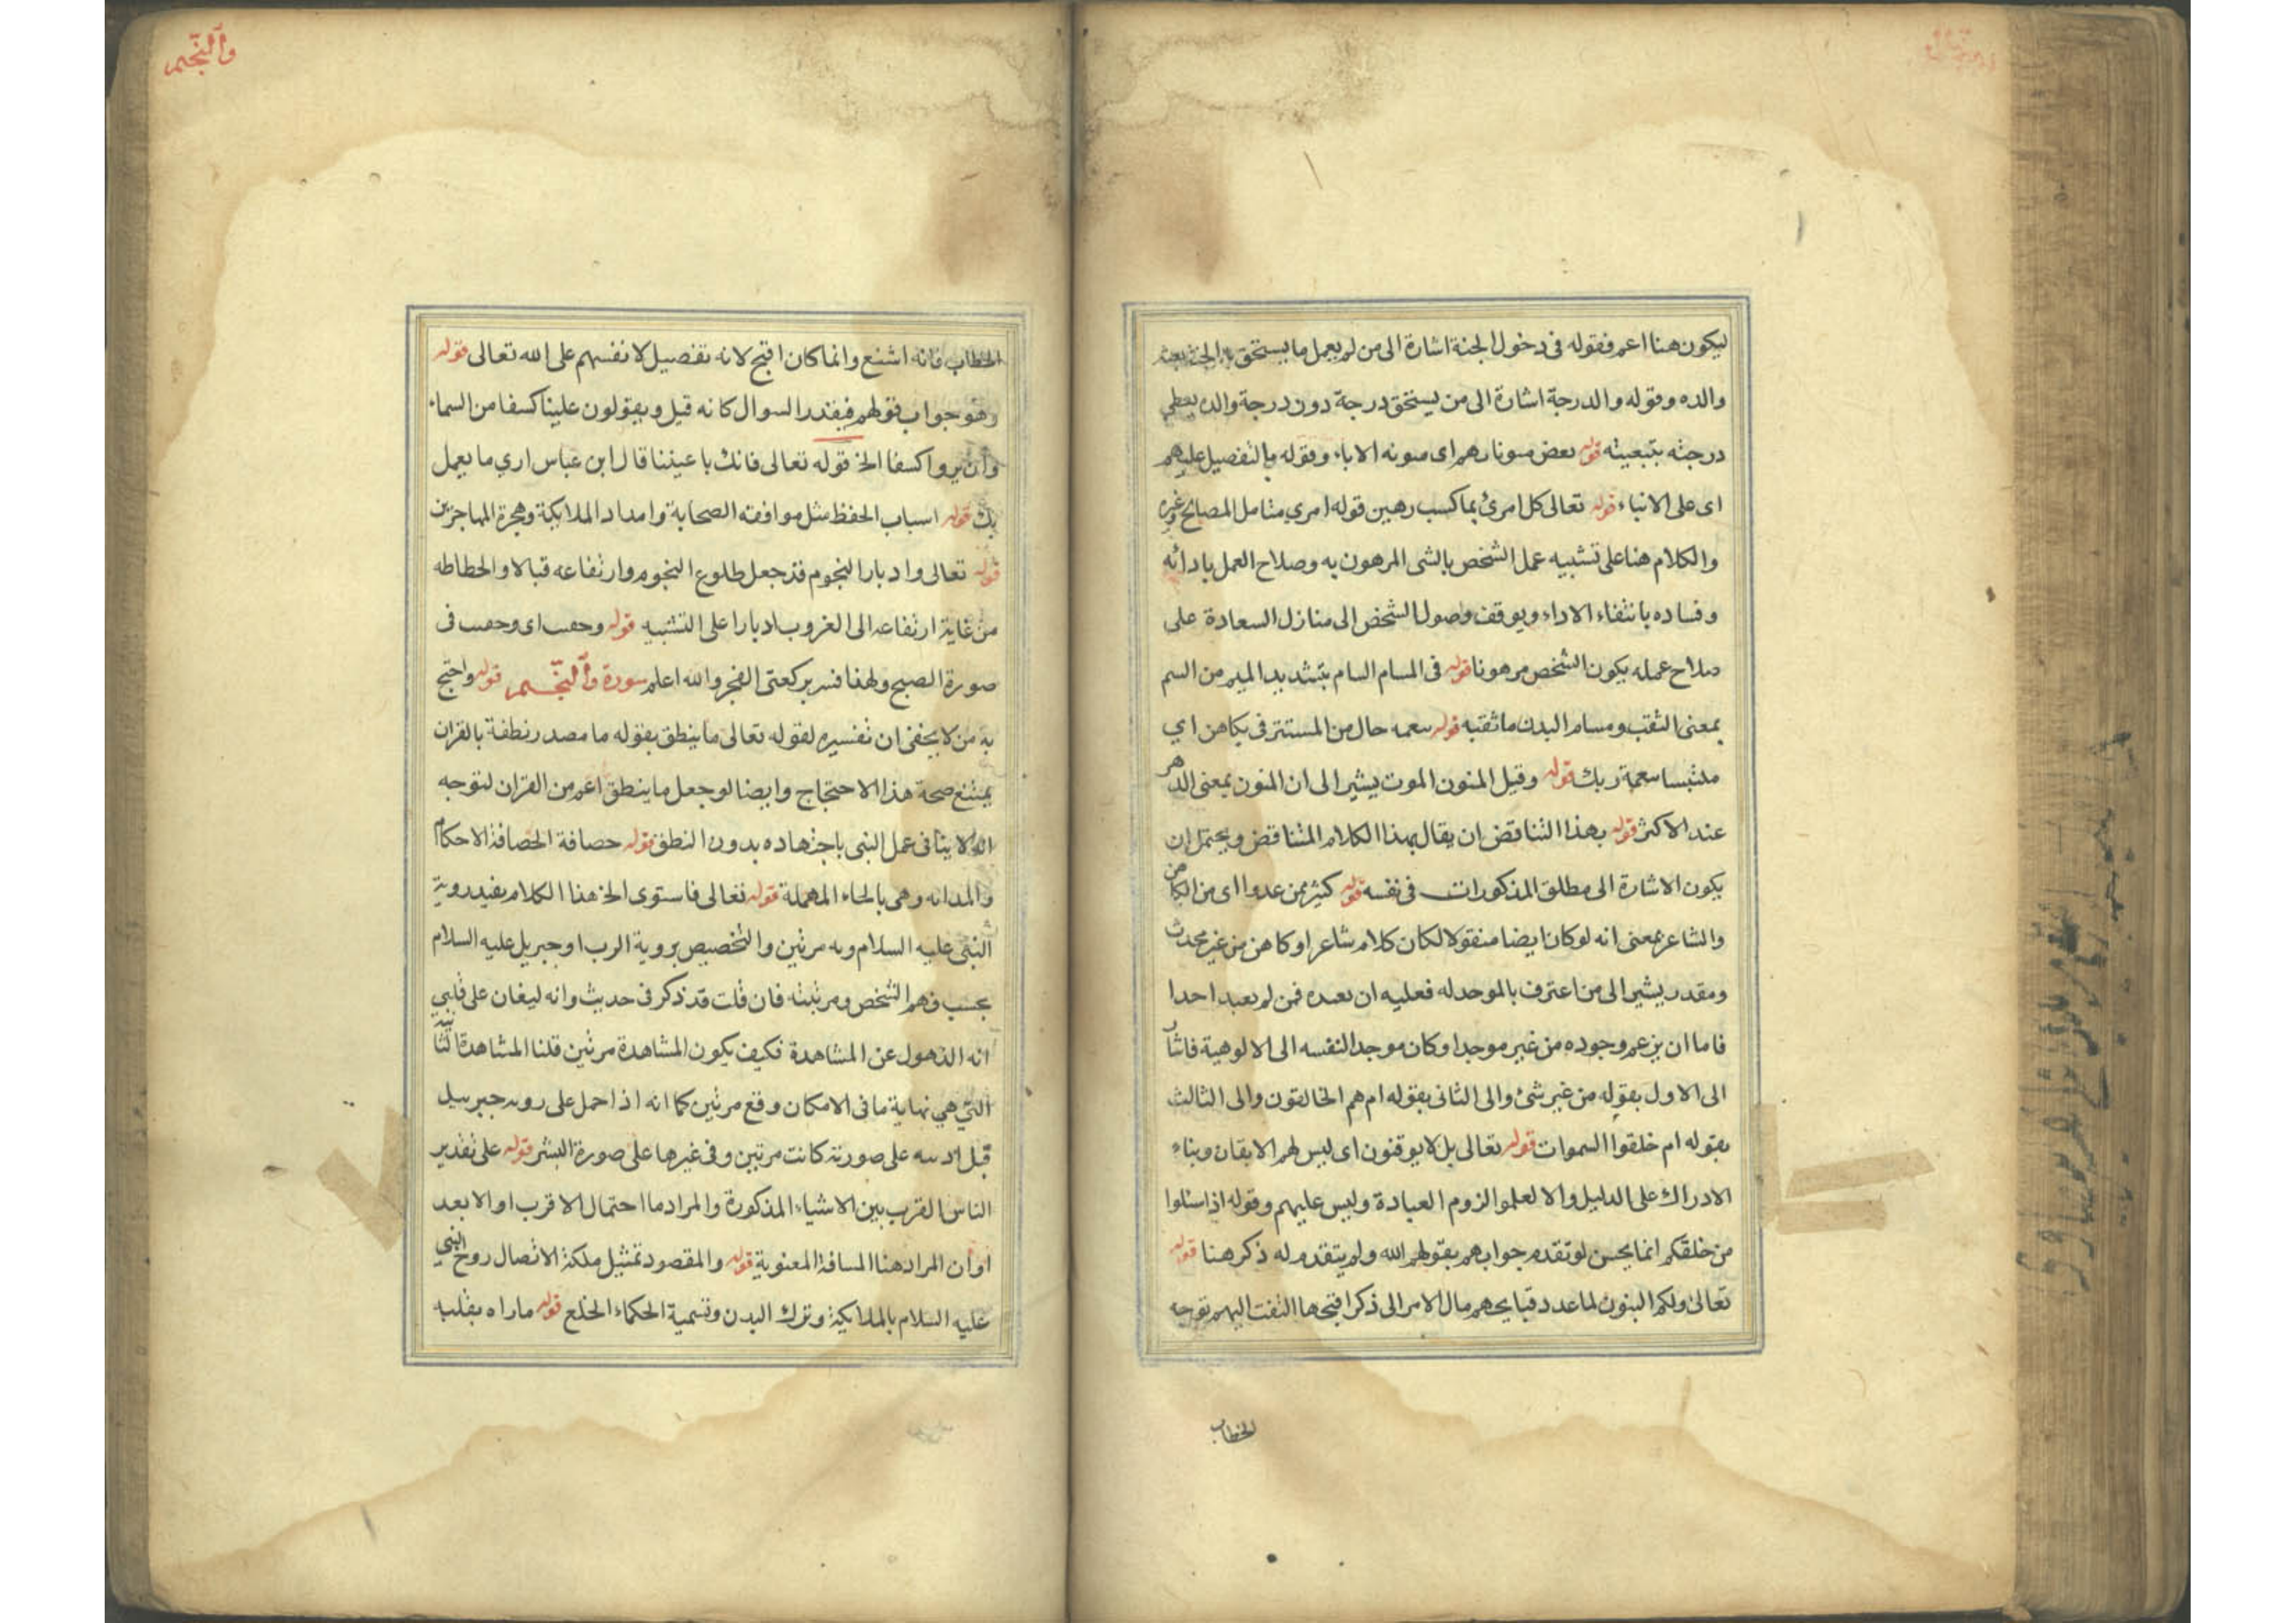 ليكون هنا اعم فقوله فى دخول الجنة اشارة الى من لم يعمل ما يستحق به الجنة
والده وقوله والدرجة اشارة الى من يستحق درجة دون درجة والده يعطى
درجته بتبعيته قوله بعض اى الاباء وقوله بالتفصيل عليهم
اى على الانباء قوله تعالى كل امرئ بما كسب رهين قوله امرى متامل المصابح وغيره
والكلام هنا على تشبيه عمل الشخص بالشى المرهون به وصلاح العمل بادائه
وفساده بانتفاء الاداء ويوقف وصول الشخص الى منازل السعادة على
صلاح عمله يكون الشخص مرهونا قوله فى المسام السام بتشديد الميم من السم
بمعنى الثقب ومسام البدن ما ثقبه قوله بنعمه حال من المستتر فى بكاهن اي
ملتبسا بنعمة ربك قوله وقيل المنون الموت يشير الى ان المنون بمعنى الدهر
عند الاكثر قوله بهذا التناقض ان يقال بهذا الكلام المتناقض ويحتمل ان
يكون الاشارة الى مطلق المذكورات فى نفسه قوله كثير ممن عدوا اى من الكاهن
والشاعر بمعنى انه لو كان ايضا منقولا لكان كلام شاعر او كاهن من غير محدث
ومقدر يشير الى من اعترف بالموحد له فعليه ان يعبده فمن لم يعبد احدا
فاما ان يزعم وجوده من غير موجد او كان موجدا لنفسه الى الالوهية فاشار
الى الاول بقوله من غير شئ والى الثانى بقوله ام هم الخالقون والى الثالث
بقوله ام خلقوا السموات قوله تعالى بل لا يوقنون اى ليس لهم الايقان وبناء
الادراك على الدليل والا لعلموا لزوم العبادة وليس عليهم وقوله اذا سئلوا
من خلقكم انما يحسن لو تقدم جوابهم بقولهم الله ولم يتقدم له ذكر هنا قوله
تعالى ولكم البنون لما عدد قبايحهم مال الامر الى ذكر اقبحها التفت اليهم توجه
الخطاب
والنجم
الخطاب فانه اشنع وانما كان اقبح لانه تفصيل لانفسهم على الله تعالى قوله
وهو جواب قولهم فيقدر السوال كانه قيل ويقولون علينا كسفا من السماء
وان يروا كسفا الخ قوله تعالى فانك باعيننا قال ابن عباس اري ما يعمل
بك قوله اسباب الحفظ مثل موافقه الصحابة وامداد الملايكة وهجرة المهاجرين
قوله تعالى وادبار النجوم قد جعل طلوع النجوم وارتفاعه قبالا والحطاطه
من غاية ارتفاعه الى الغروب ادبارا على التشبيه قوله اى فى
صورة الصبح ولهذا فسر بركعتى الفجر والله اعلم سورة والنجم قوله واحتج
به من لا يخفى ان تفسيره لقوله تعالى ما ينطق بقوله ما مصدر نطقه بالقران
يمتنع صحة هذا الاحتجاج وايضا لو جعل ما ينطق اعم من القران لتوجه
انه لا ينافى عمل النبى باجتهاده بدون النطق قوله حصافة الحصافة الاحكام
والمدانه وهى بالحاء المهملة قوله تعالى فاستوى الخ هذا الكلام يفيد روية
النبى عليه السلام مرتين والتخصيص بروية الرب او جبريل عليه السلام
بحسب فهم الشخص ومرتبته فان قلت قد ذكر فى حديث وانه ليغان على قلبي
انه الذهول عن المشاهدة فكيف يكون المشاهدة مرتين قلنا المشاهدة
التي هي نهاية ما فى الامكان وقع مرتين كما انه اذا حمل على رويه جبرييل
قبل على صورته كانت مرتين وفى غيرها على صورة البشر قوله على تقدير
الناس القرب بين الاشياء المذكورة والمراد ما احتمال الاقرب او الابعد
او ان المراد هنا المسافة المعنوية قوله والمقصود تمثيل ملكة الاتصال روح النبي
عليه السلام بالملايكة وترك البدن وتسمية الحكماء الخلع قوله ما راه بقلبه